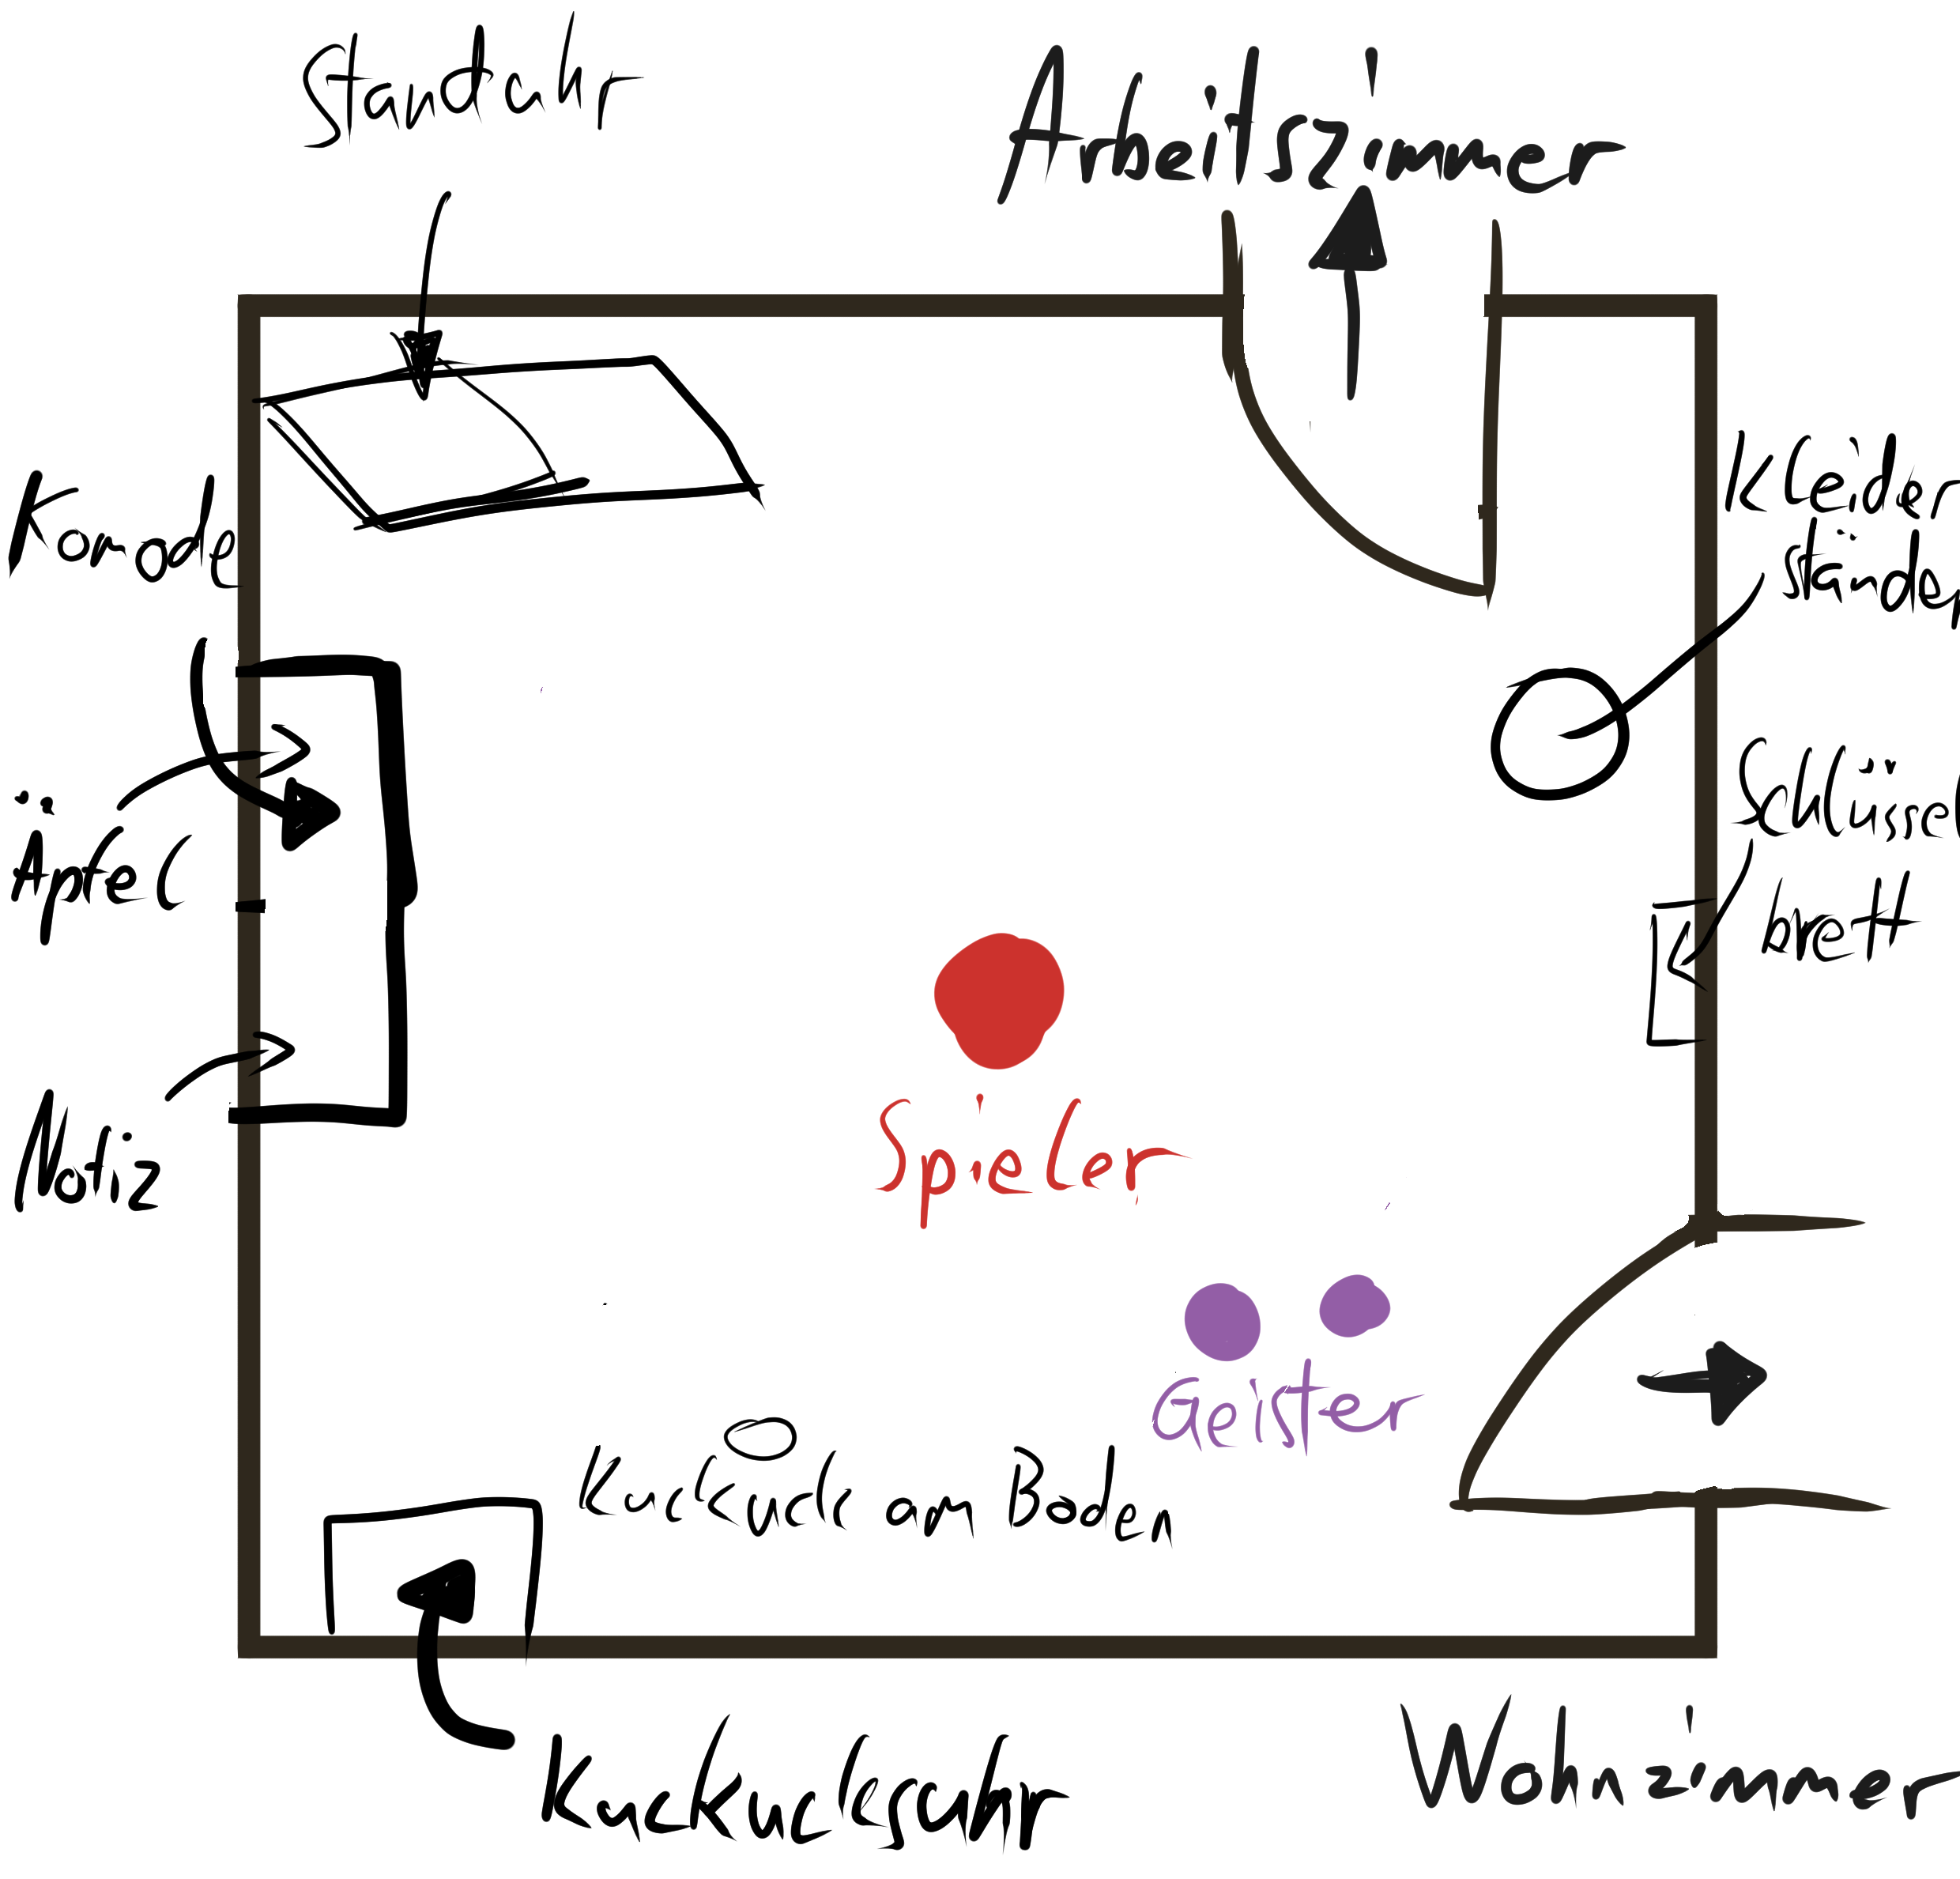 Standuhr
Arbeitszimmer
Komode
Kleider
ständer
Äpfel
Schlüssel
brett
Notiz
Spieler
Geister
Rucksack am Boden
Kuckucksuhr
Wohnzimmer